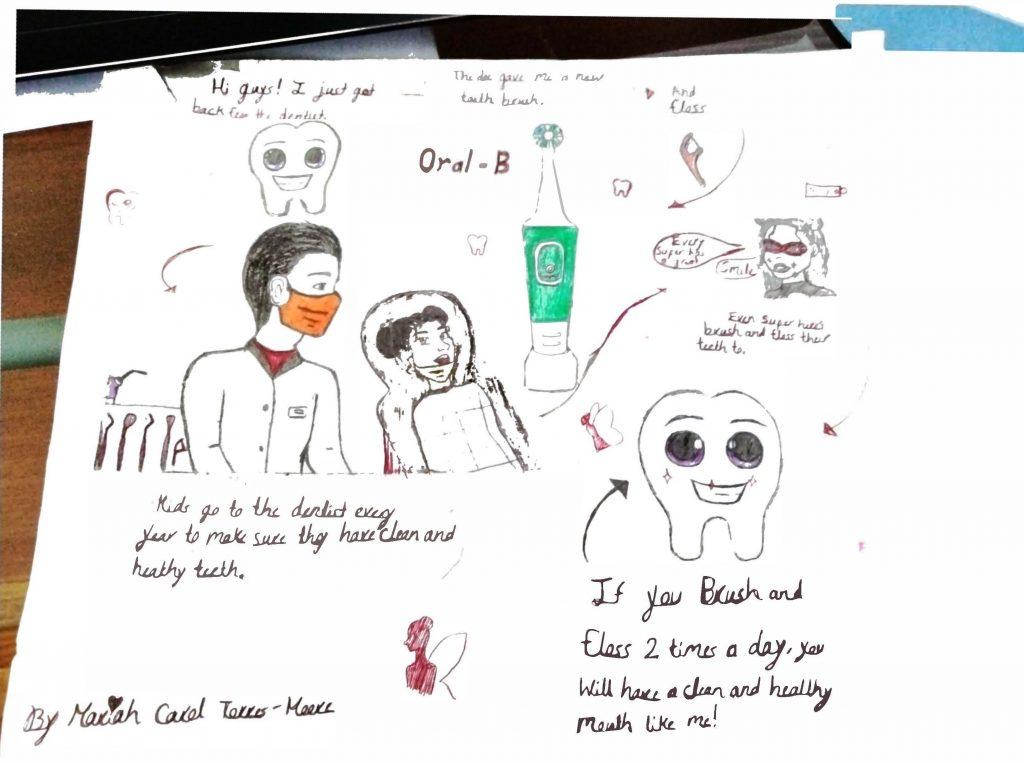 Hi guys! I just got
back from the dentist.
The doc gave me a new
tooth brush.
And
floss
Oral-B
Every
super has
a great
Smile
Even super heros
brush and floss their
teeth to.
Kids go to the dentist every
year to make sure they have clean and
heathy teeth.
If you Brush and
Floss 2 times a day, you
Will have a clean and healthy
mouth like me!
By Mariah Carol Torres-Moore